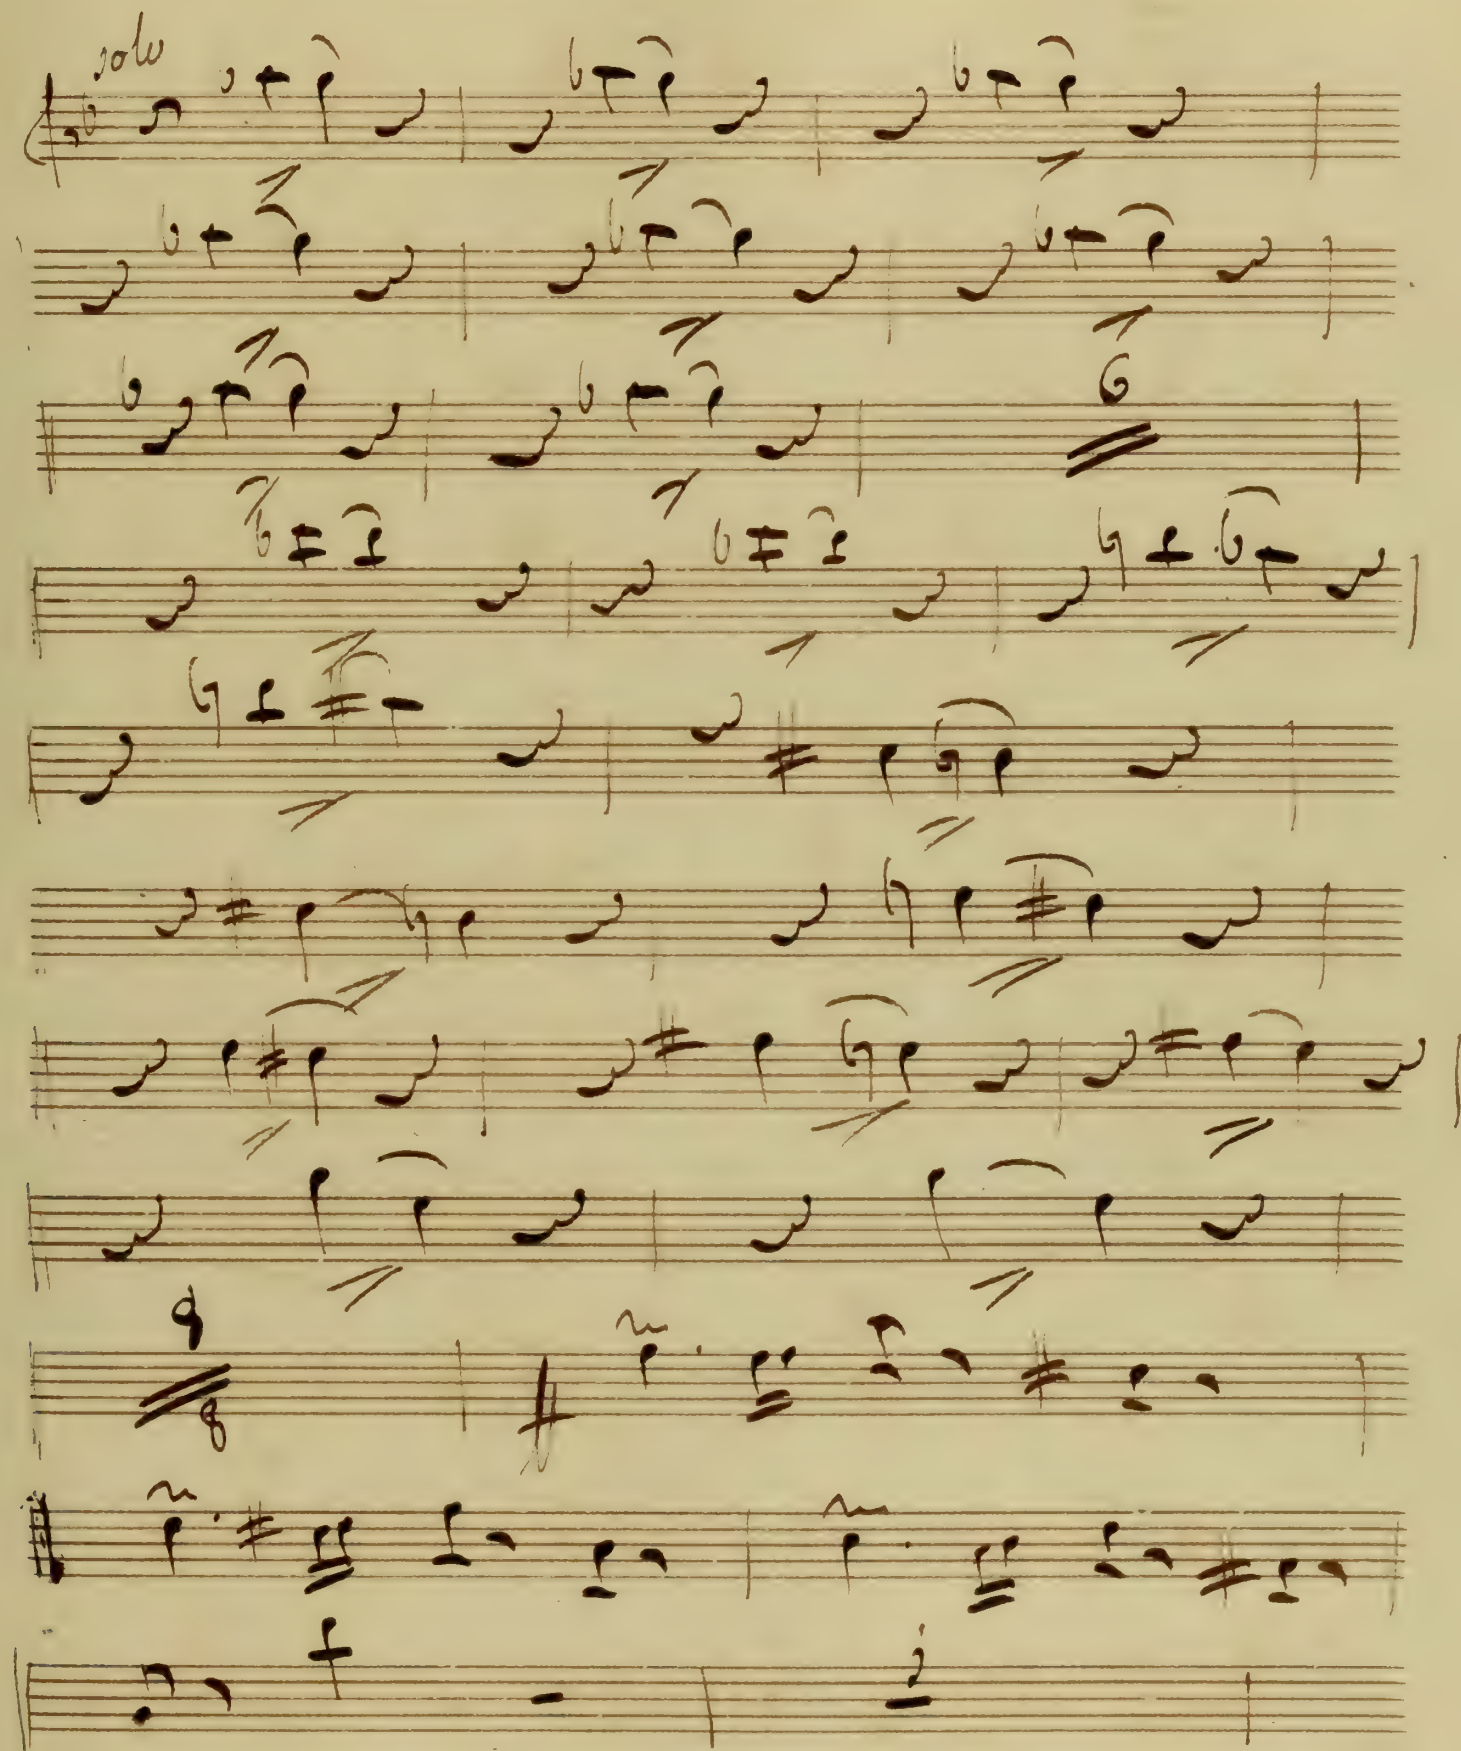 solo
6
9
8